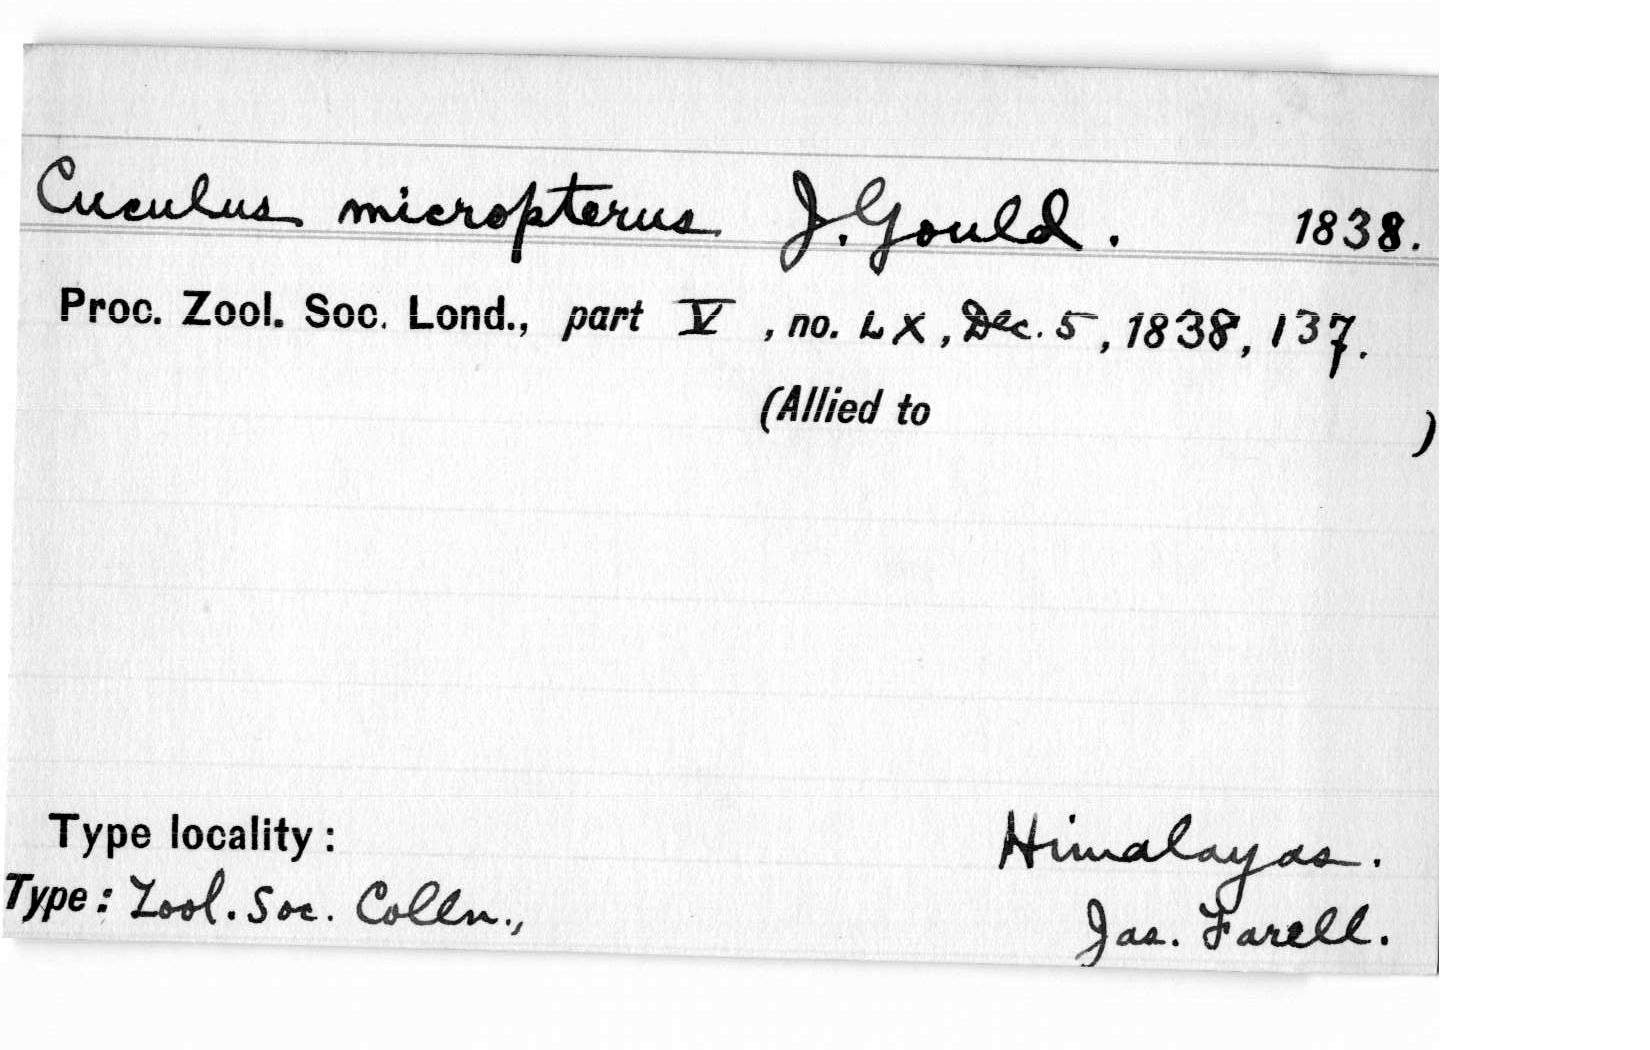 Cuculus micropterus J. Gould. 1838.
Proc. Zool. Soc. Lond., part V, no. LX, Dec. 5, 1838, 137.
(Allied to )
Type locality: Himalayas.
Type: Zool. Soc. Colln., Jas. Farell.